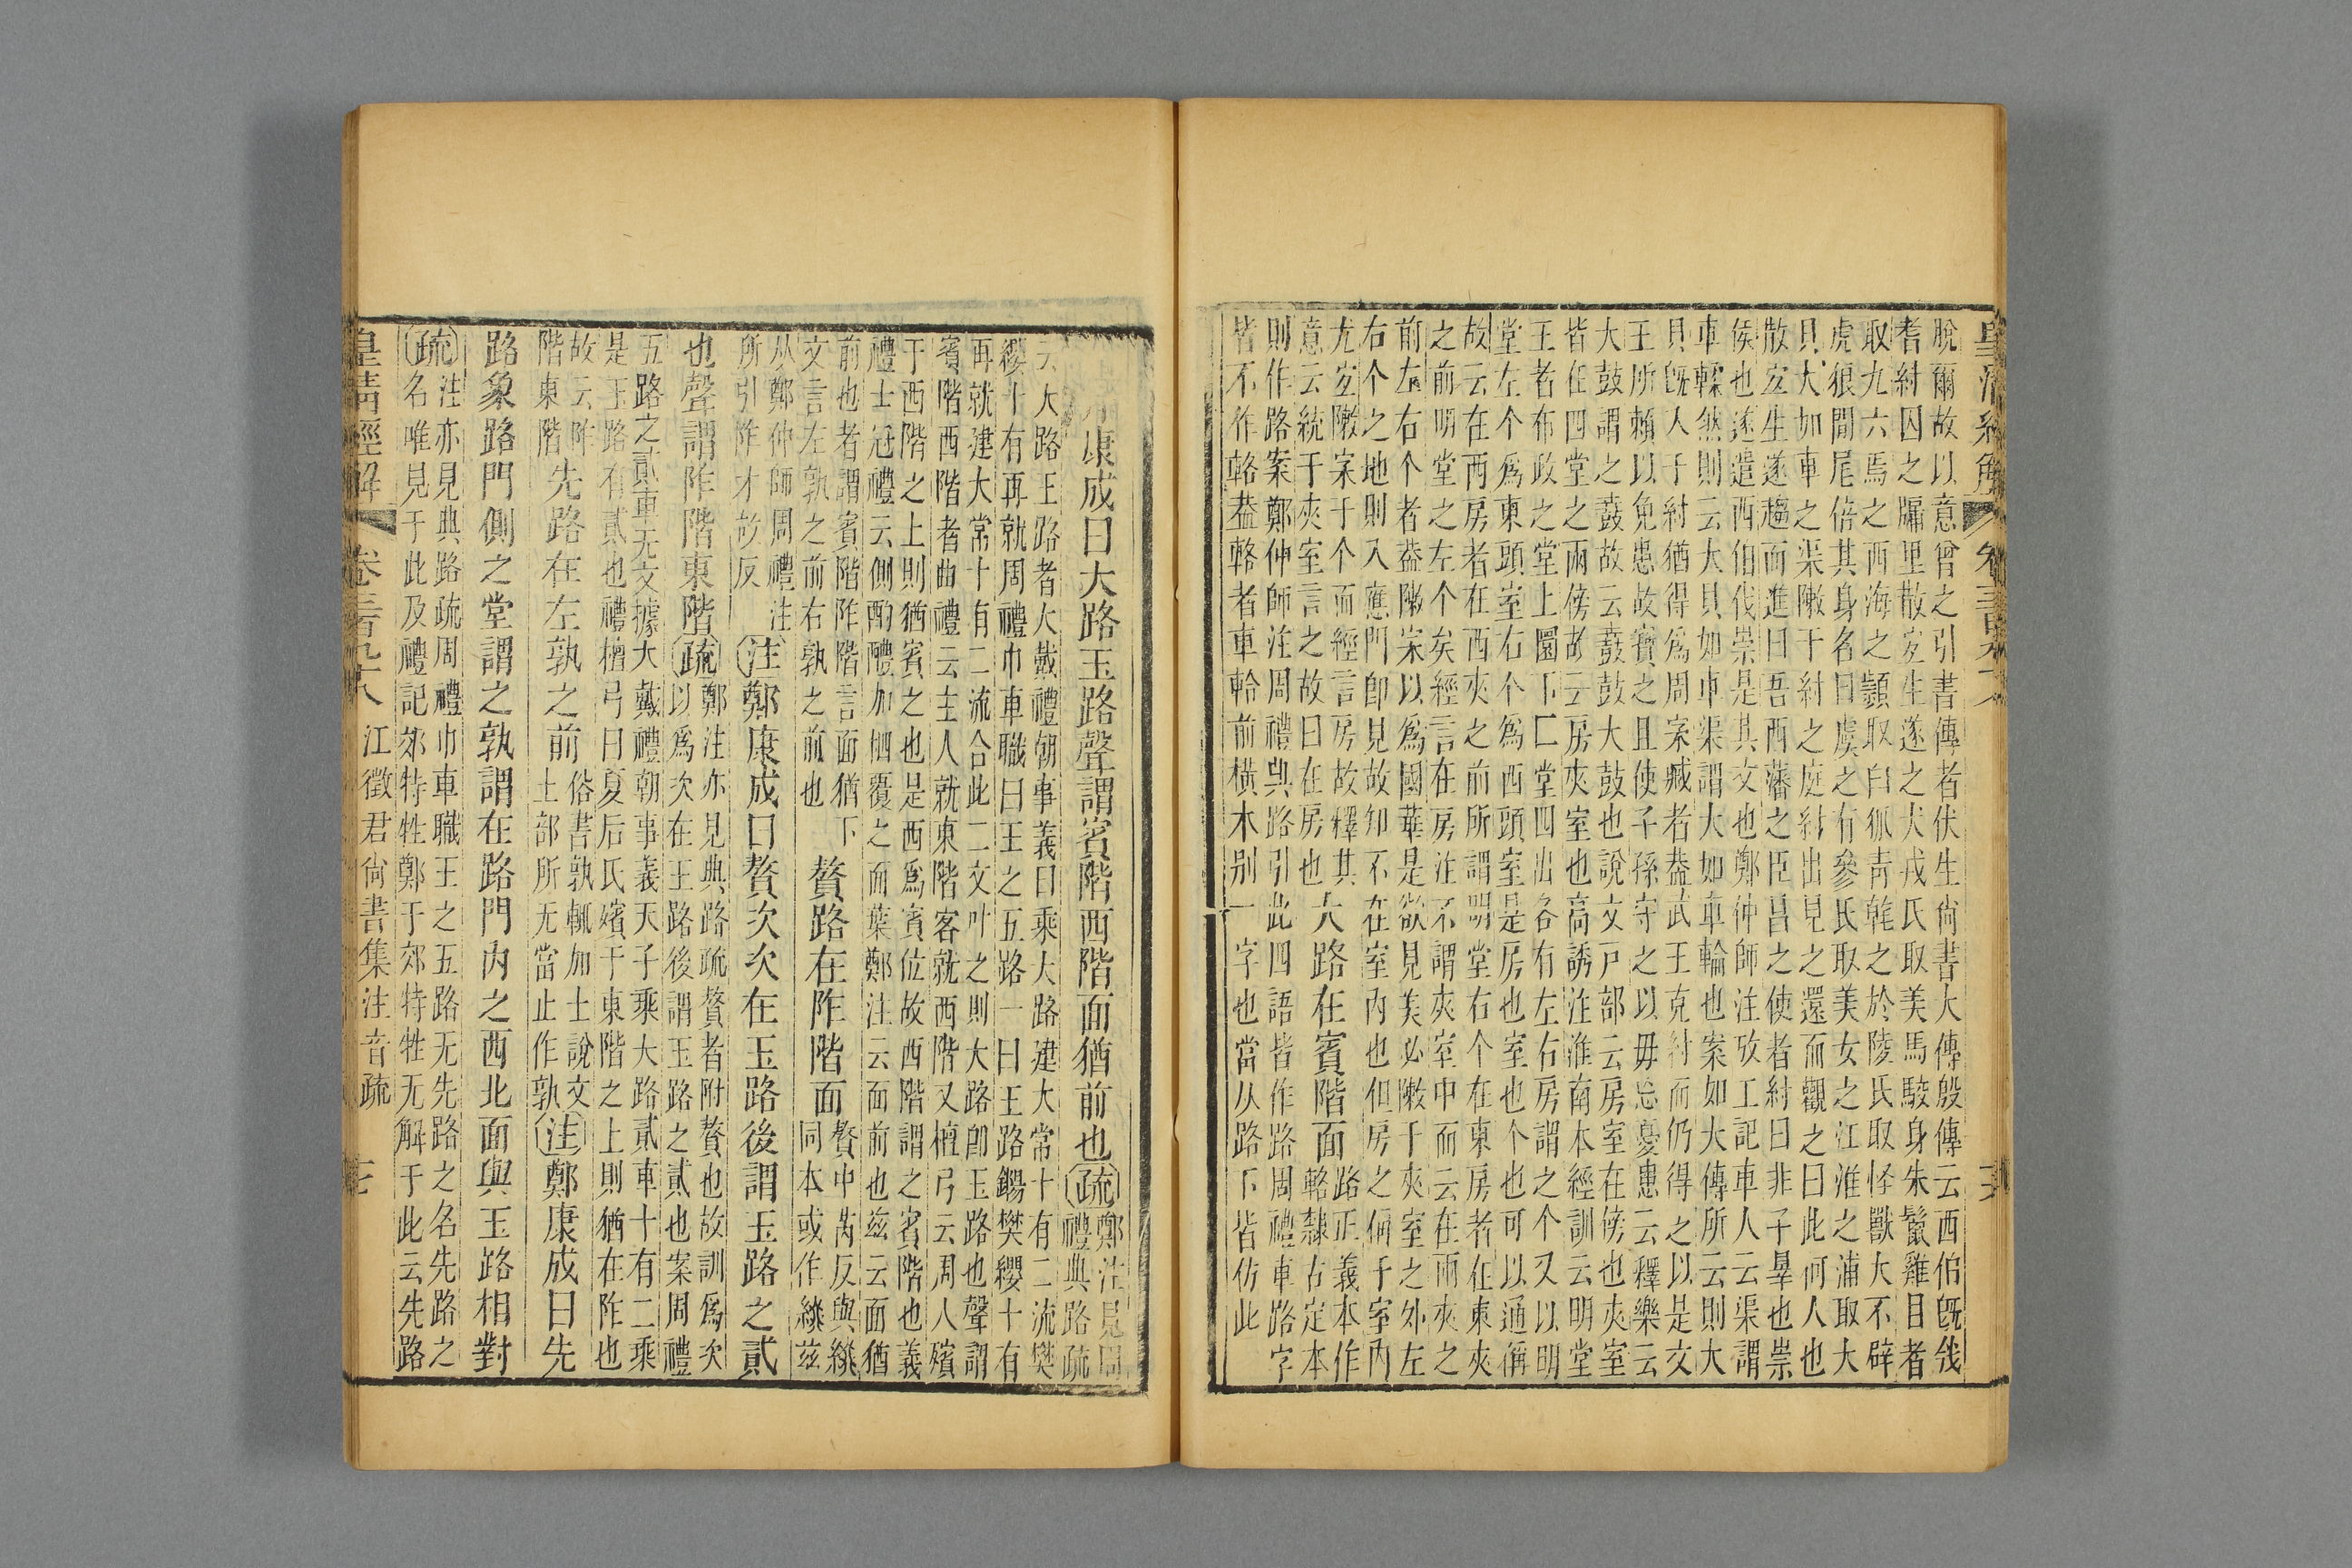 脫爾故以意曾之引書傳者伏生尙書大傳殷傳云西伯旣𢦟
耆紂囚之牖里散宜生遂之犬戎氏取美馬駮身朱鬣雞目者
取九六焉之西海之顥取白狐青䯎之於陵氏取怪獸大不辟
虎狼間尾倍其身名曰虞之有參氏取美女之江淮之浦取大
貝大如車之渠敶于紂之庭紂出見之還而觀之曰此何人也
散宜生遂趨而進曰吾西藩之臣昌之使者紂曰非子辠也崇
侯也遂遣西伯伐崇是其文也鄭仲師注攷工記車人云渠謂
車輮然則云大貝如車渠謂大如車輪也案如大傳所云則大
貝旣入于紂猶得爲周家臧者葢武王克紂而仍得之以是文
王所賴以免患故寳之且使子孫守之以毋忘憂患云釋樂云
大鼓謂之鼖故云鼖鼓大鼓也說文戸部云房室在傍也夾室
皆在四堂之兩傍故云房夾室也高誘注淮南本經訓云明堂
王者布政之堂上圜下匚堂四出各有左右房謂之个又以明
堂左个爲東頭室右个爲西頭室是房也室也个也可以通偁
故云在西房者在西夾之前所謂明堂右个在東房者在東夾
之前明堂之左个矣經言在房注不謂夾室中而云在兩夾之
前左右个者葢敶宋以爲國華是欲見美必敶于夾室之外左
右个之地則入應門卽見故知不在室內也但房之偁于室內
尤宜敶宋于个而經言房故釋其
意云統于夾室言之故曰在房也大路在賓階面路正義本作
輅隸古定本
則作路案鄭仲師注周禮典路引此四語皆作路周禮車路字
皆不作輅葢輅者車軨前橫木别一字也當从路下皆仿此
康成曰大路玉路聲謂賓階西階面猶前也疏鄭注見周
禮典路疏
云大路玉路者大戴禮朝事義曰乘大路建大常十有二流樊
纓十有再就周禮巾車職曰王之五路一曰玉路鍚樊纓十有
再就建大常十有二流合此二文叶之則大路卽玉路也聲謂
賓階西階者曲禮云主人就東階客就西階又檀弓云周人殯
于西階之上則猶賓之也是西爲賓位故西階謂之賓階也義
禮士冠禮云側酌醴加柶覆之面葉鄭注云面前也兹云面猶
前也者謂賓階阼階言面猶下
文言左孰之前右孰之前也贅路在阼階面贅中芮反與綴
同本或作綴兹
从鄭仲師周禮注
所引阼才故反注鄭康成曰贅次次在玉路後謂玉路之貳
也聲謂阼階東階疏鄭注亦見典路疏贅者附贅也故訓爲次
以爲次在王路後謂玉路之貳也案周禮
五路之貳車无文據大戴禮朝事義天子乘大路貳車十有二乘
是玉路有貳也禮檀弓曰夏后氏殯于東階之上則猶在阼也
故云阼
階東階先路在左孰之前俗書孰輒加土說文
土部所无當止作孰注鄭康成曰先
路象路門側之堂謂之孰謂在路門內之西北面與玉路相對
疏注亦見典路疏周禮巾車職王之五路无先路之名先路之
名唯見于此及禮記郊特牲鄭于郊特牲无解于此云先路
皇淸經解 卷三百九十八 江徵君尙書集注音疏